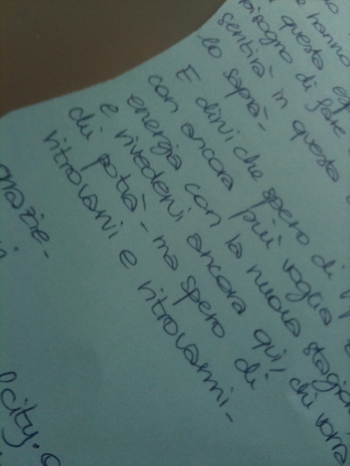 hanno
questa
bisogno di fare
sentirà in questa
lo saprà-
E dirvi che spero di
con ancora più voglia
energia con la nuova stagion
e rivedervi ancora qui, chi vorrà
chi potrà- ma spero di
ritrovarvi e ritrovarmi-
grazie-
city.